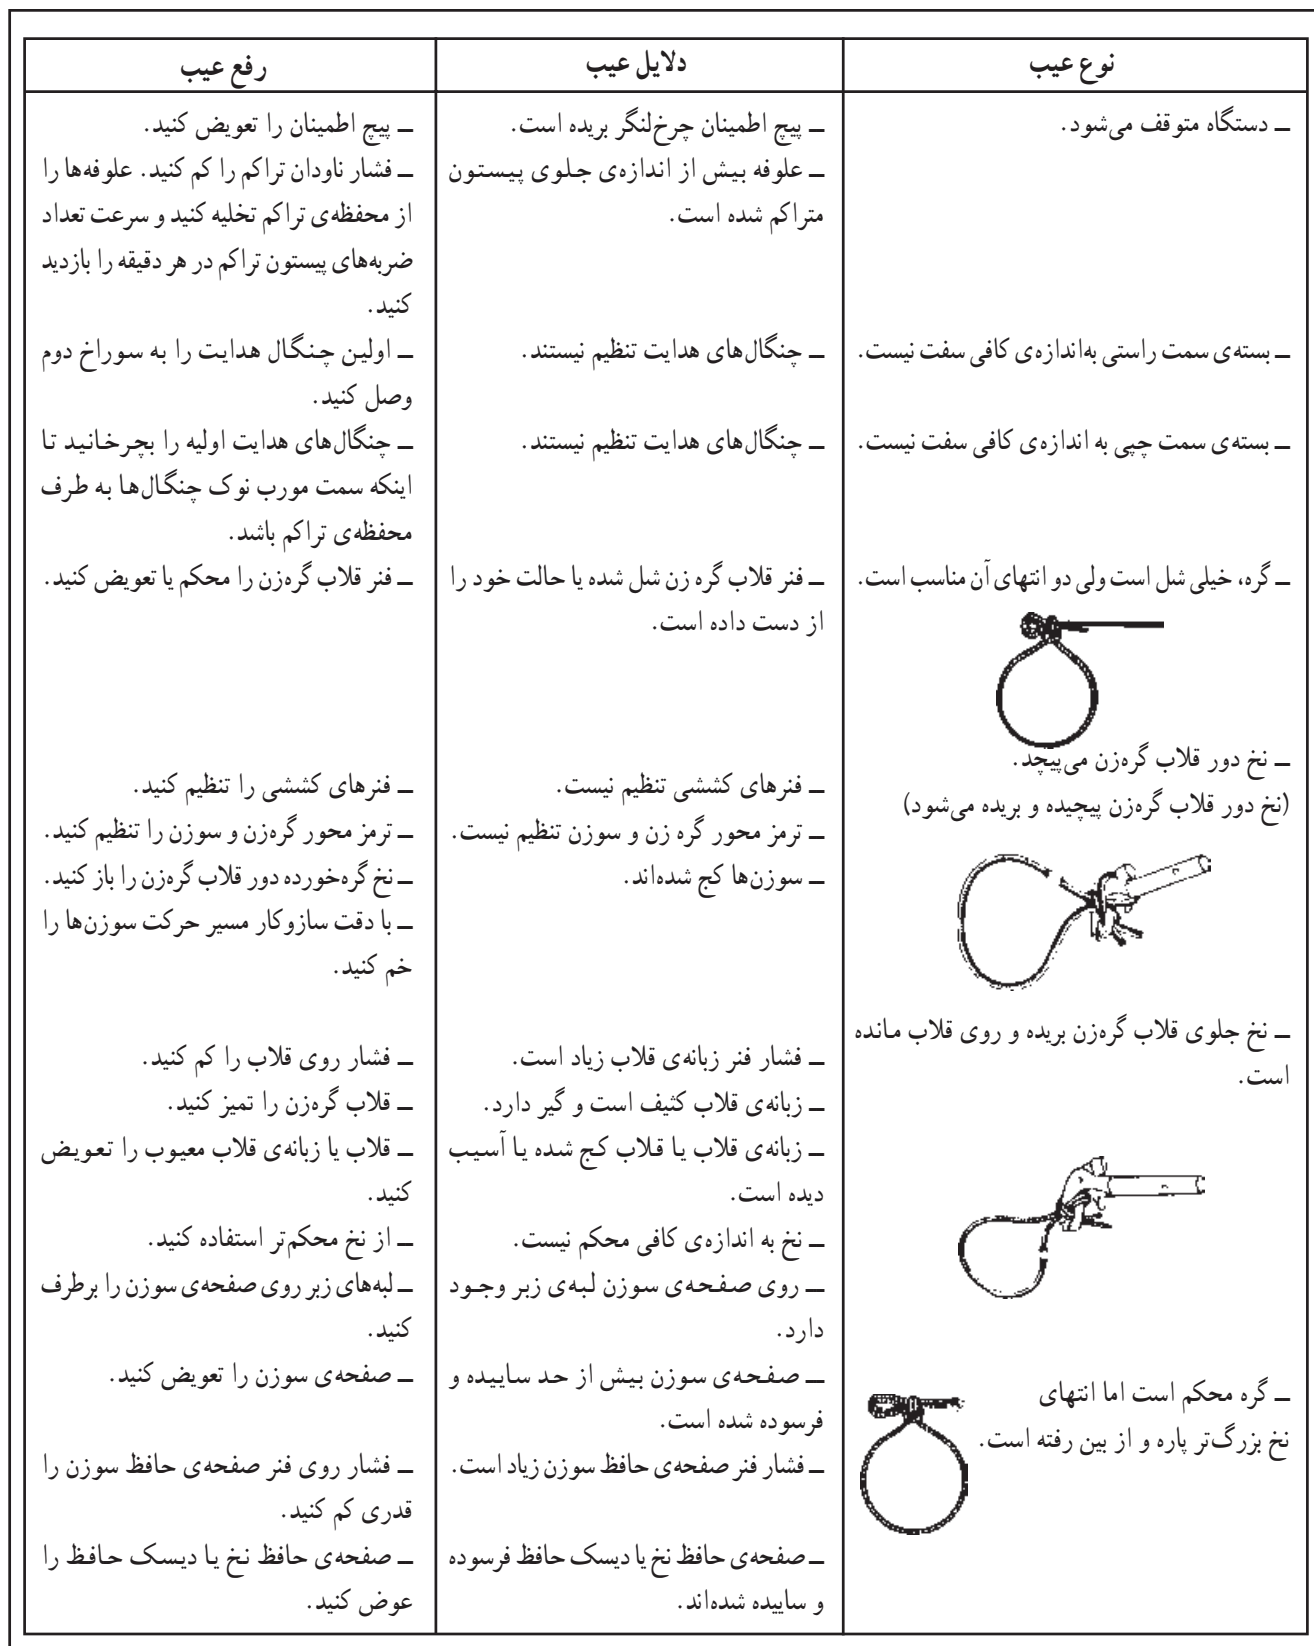 نوع عیب
دلایل عیب
رفع عیب
ــ دستگاه متوقف می‌شود.
ــ پیچ اطمینان چرخ‌لنگر بریده است.
ــ پیچ اطمینان را تعویض کنید.
ــ علوفه بیش از اندازه‌ی جلوی پیستون
متراکم شده است.
ــ فشار ناودان تراکم را کم کنید. علوفه‌ها را
از محفظه‌ی تراکم تخلیه کنید و سرعت تعداد
ضربه‌های پیستون تراکم در هر دقیقه را بازدید
کنید.
ــ بسته‌ی سمت راستی به‌اندازه‌ی کافی سفت نیست.
ــ چنگال‌های هدایت تنظیم نیستند.
ــ اولین چنگال هدایت را به سوراخ دوم
وصل کنید.
ــ بسته‌ی سمت چپی به اندازه‌ی کافی سفت نیست.
ــ چنگال‌های هدایت تنظیم نیستند.
ــ چنگال‌های هدایت اولیه را بچرخانید تا
اینکه سمت مورب نوک چنگال‌ها به طرف
محفظه‌ی تراکم باشد.
ــ گره، خیلی شل است ولی دو انتهای آن مناسب است.
ــ فنر قلاب گره زن شل شده یا حالت خود را
از دست داده است.
ــ فنر قلاب گره‌زن را محکم یا تعویض کنید.
ــ نخ دور قلاب گره‌زن می‌پیچد.
(نخ دور قلاب گره‌زن پیچیده و بریده می‌شود)
ــ فنرهای کششی تنظیم نیست.
ــ ترمز محور گره زن و سوزن تنظیم نیست.
ــ سوزن‌ها کج شده‌اند.
ــ فنرهای کششی را تنظیم کنید.
ــ ترمز محور گره‌زن و سوزن را تنظیم کنید.
ــ نخ گره‌خورده دور قلاب گره‌زن را باز کنید.
ــ با دقت سازوکار مسیر حرکت سوزن‌ها را
خم کنید.
ــ نخ جلوی قلاب گره‌زن بریده و روی قلاب مانده
است.
ــ فشار فنر زبانه‌ی قلاب زیاد است.
ــ زبانه‌ی قلاب کثیف است و گیر دارد.
ــ زبانه‌ی قلاب یا قلاب کج شده یا آسیب
دیده است.
ــ نخ به اندازه‌ی کافی محکم نیست.
ــ روی صفحه‌ی سوزن لبه‌ی زبر وجود
دارد.
ــ فشار روی قلاب را کم کنید.
ــ قلاب گره‌زن را تمیز کنید.
ــ قلاب یا زبانه‌ی قلاب معیوب را تعویض
کنید.
ــ از نخ محکم‌تر استفاده کنید.
ــ لبه‌های زبر روی صفحه‌ی سوزن را برطرف
کنید.
ــ گره محکم است اما انتهای
نخ بزرگ‌تر پاره و از بین رفته است.
ــ صفحه‌ی سوزن بیش از حد ساییده و
فرسوده شده است.
ــ فشار فنر صفحه‌ی حافظ سوزن زیاد است.
ــ صفحه‌ی حافظ نخ یا دیسک حافظ فرسوده
و ساییده شده‌اند.
ــ صفحه‌ی سوزن را تعویض کنید.
ــ فشار روی فنر صفحه‌ی حافظ سوزن را
قدری کم کنید.
ــ صفحه‌ی حافظ نخ یا دیسک حافظ را
عوض کنید.